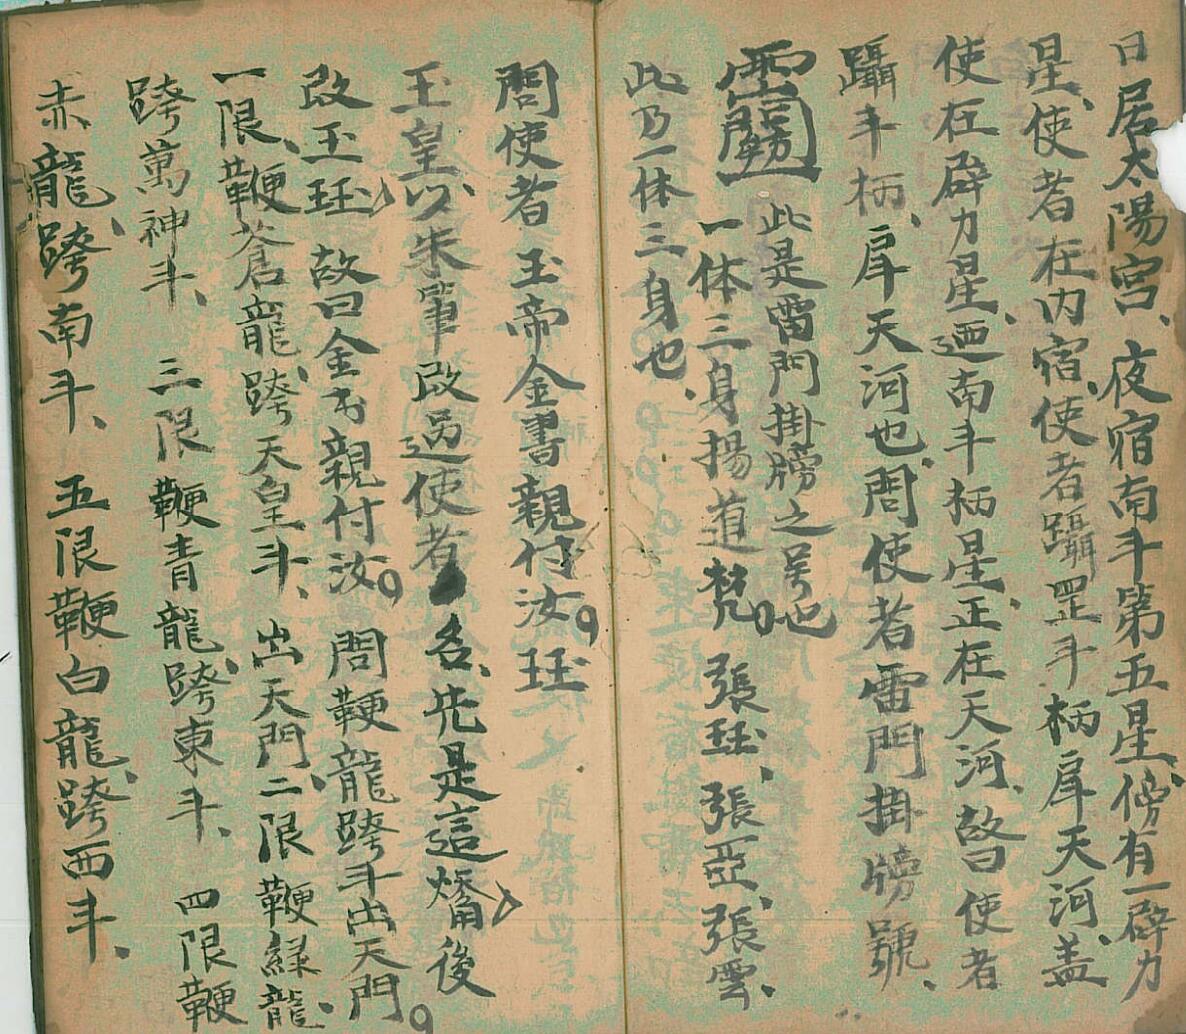 日居太陽宮、夜宿南斗第五星、傍有一辟力
星、使者在内宿、使者躡罡斗柄戽天河、盖
使在辟力星、迊南斗柄星、正在天河、故曰使者
躡斗柄、戽天河也、問使者雷門掛牓號、
此是雷門掛牓之号也
一体三身揚道梵 張珏、張亞、張雲、
此乃一体三身也、
問使者玉帝金書親付汝珏
玉皇以朱筆改 使者名、先是這 後
改玉珏 故曰金书親付汝 問鞭龍跨斗出天門
一限、鞭蒼龍、跨天皇斗、出天門、二限鞭緑龍、
跨萬神斗、 三限鞭青龍、跨東斗、 四限鞭
赤龍、跨南斗、 五限鞭白龍、跨西斗、